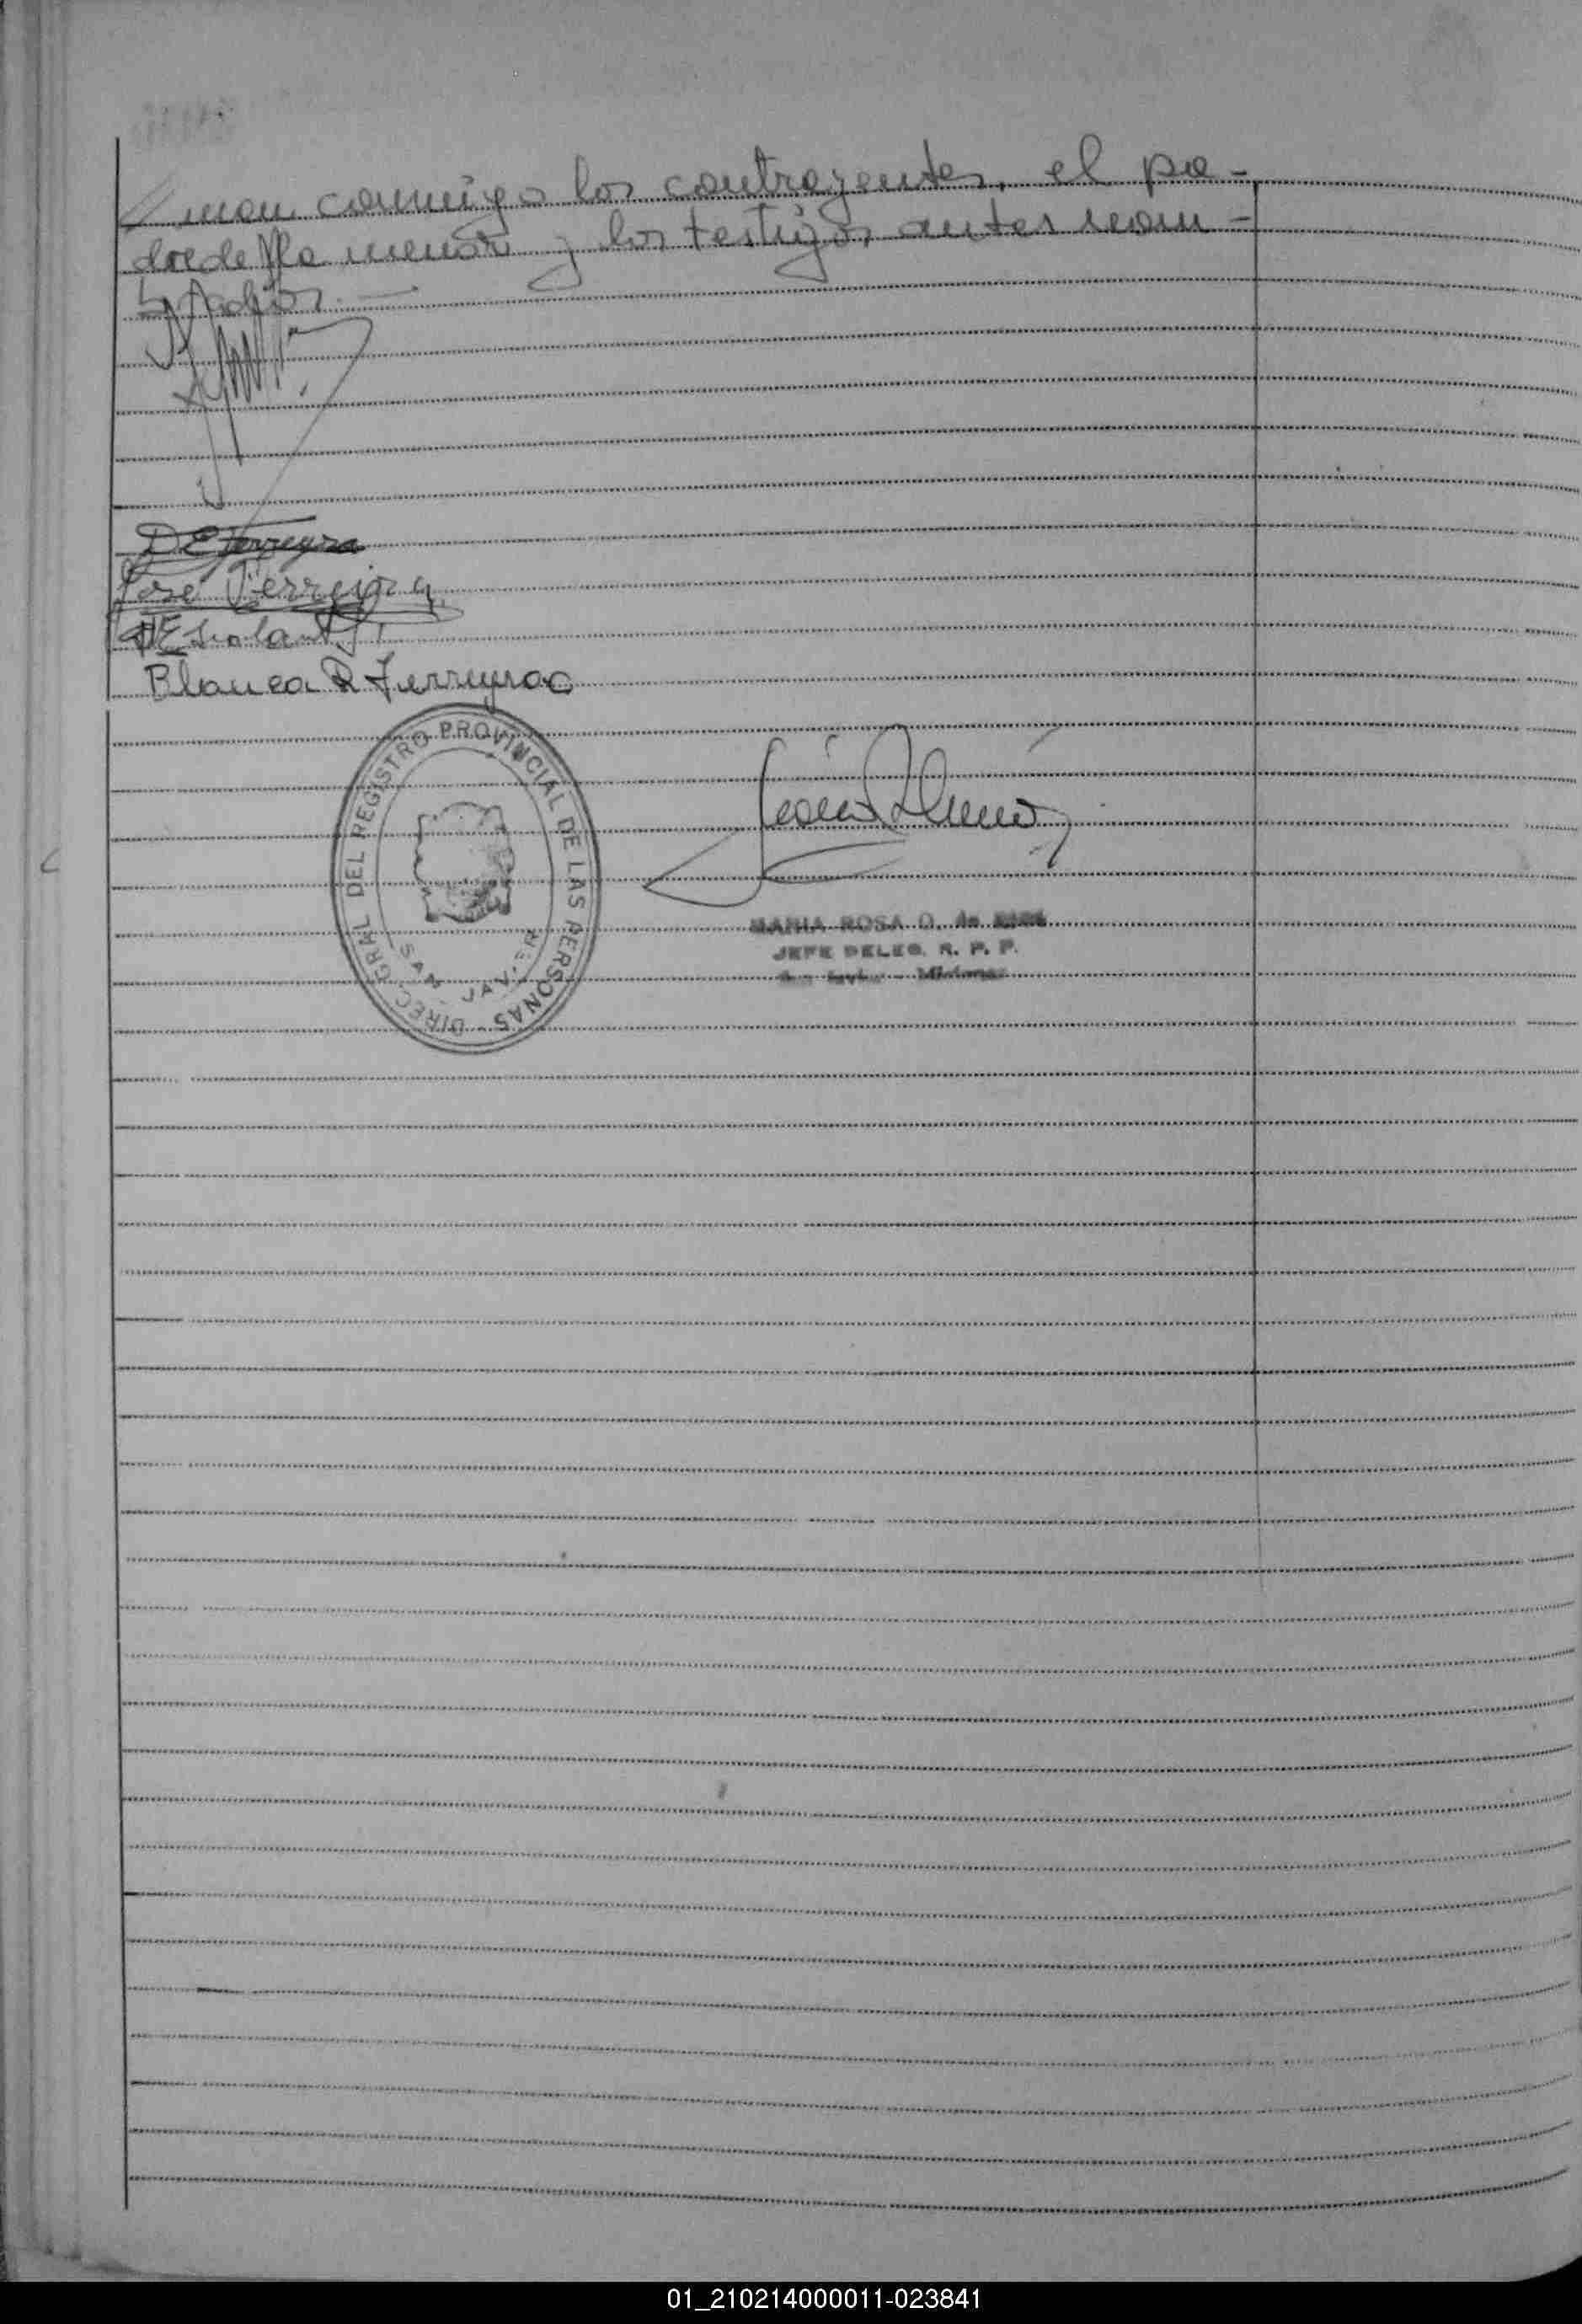 man conmigo los contrayentes, el pa-
dre de la menor y los testigos antes nom-
brados. —
D E Ferreyra
José Ferreira
Blanca R Ferreyra
DIREC. GRAL DEL REGISTRO PROVINCIAL DE LAS PERSONAS -
SAN JAVIER
MARIA ROSA O. de
JEFE DELEG. R. P. P.
San Javier - Misiones
01_210214000011-023841